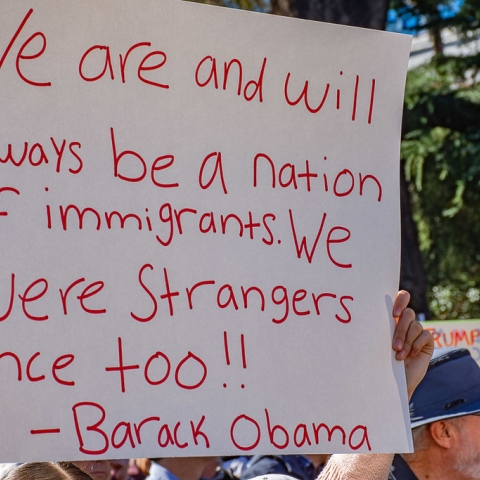 We are and will
ways be a nation
f immigrants. We
were Strangers
nce too!!
- Barack Obama
TRUMP